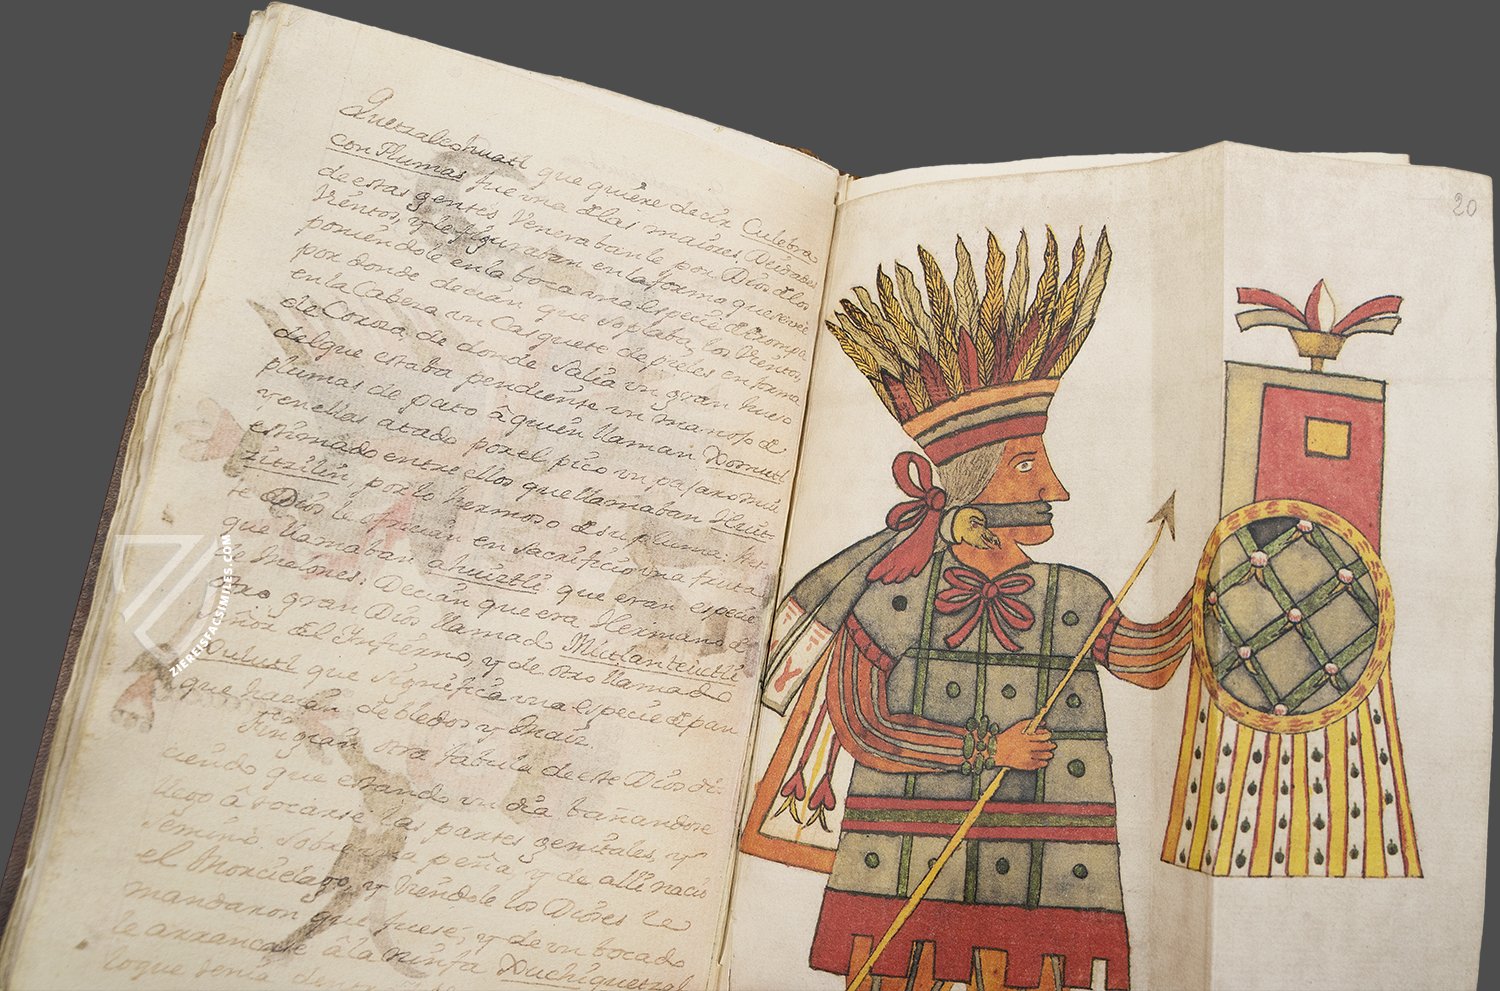 Quetzalcohuatl que quiere decir Culebra
con Plumas fue una d las maiores Deidades
de estas gentes Venerabanle por Dios d los
Vientos, y le figuraban en la forma que se ve
poniendole en la boca una especie d trompa
por donde decian que soplaba, los Vientos,
en la Cabeza un Casquete de pieles en forma
de Coroza, de donde salia un gran hueso
del que estaba pendiente un manojo d
plumas de pato â quien llaman
y en ellas atado por el pico un pajaro mui
estimado entre ellos que llamaban Huitzi
tzilin por lo hermoso d su pluma. A es
te Dios le ofrecian en sacrificio una fruta
que llamaban ahuiztli que eran especie
de Melones: Decian que era Hermano d
otro gran Dios llamado Mictlantecutli
Señor del Infierno, y de otro llamado
que significa una especie d pan
que hacian de bledos y Maiz.
Fingian otra fabula de este Dios di-
ciendo que estando un dia bañandose
llego â tocarse las partes genitales, y
Seminio sobre una peña y de alli nacio
el Morcielago, y viendole los Dioses le
mandaron que fuese, y de un bocado
le arrancase â la ninfa Xuchiquetzal
lo que tenia dentro
20
ZIEREISFACSIMILES.COM